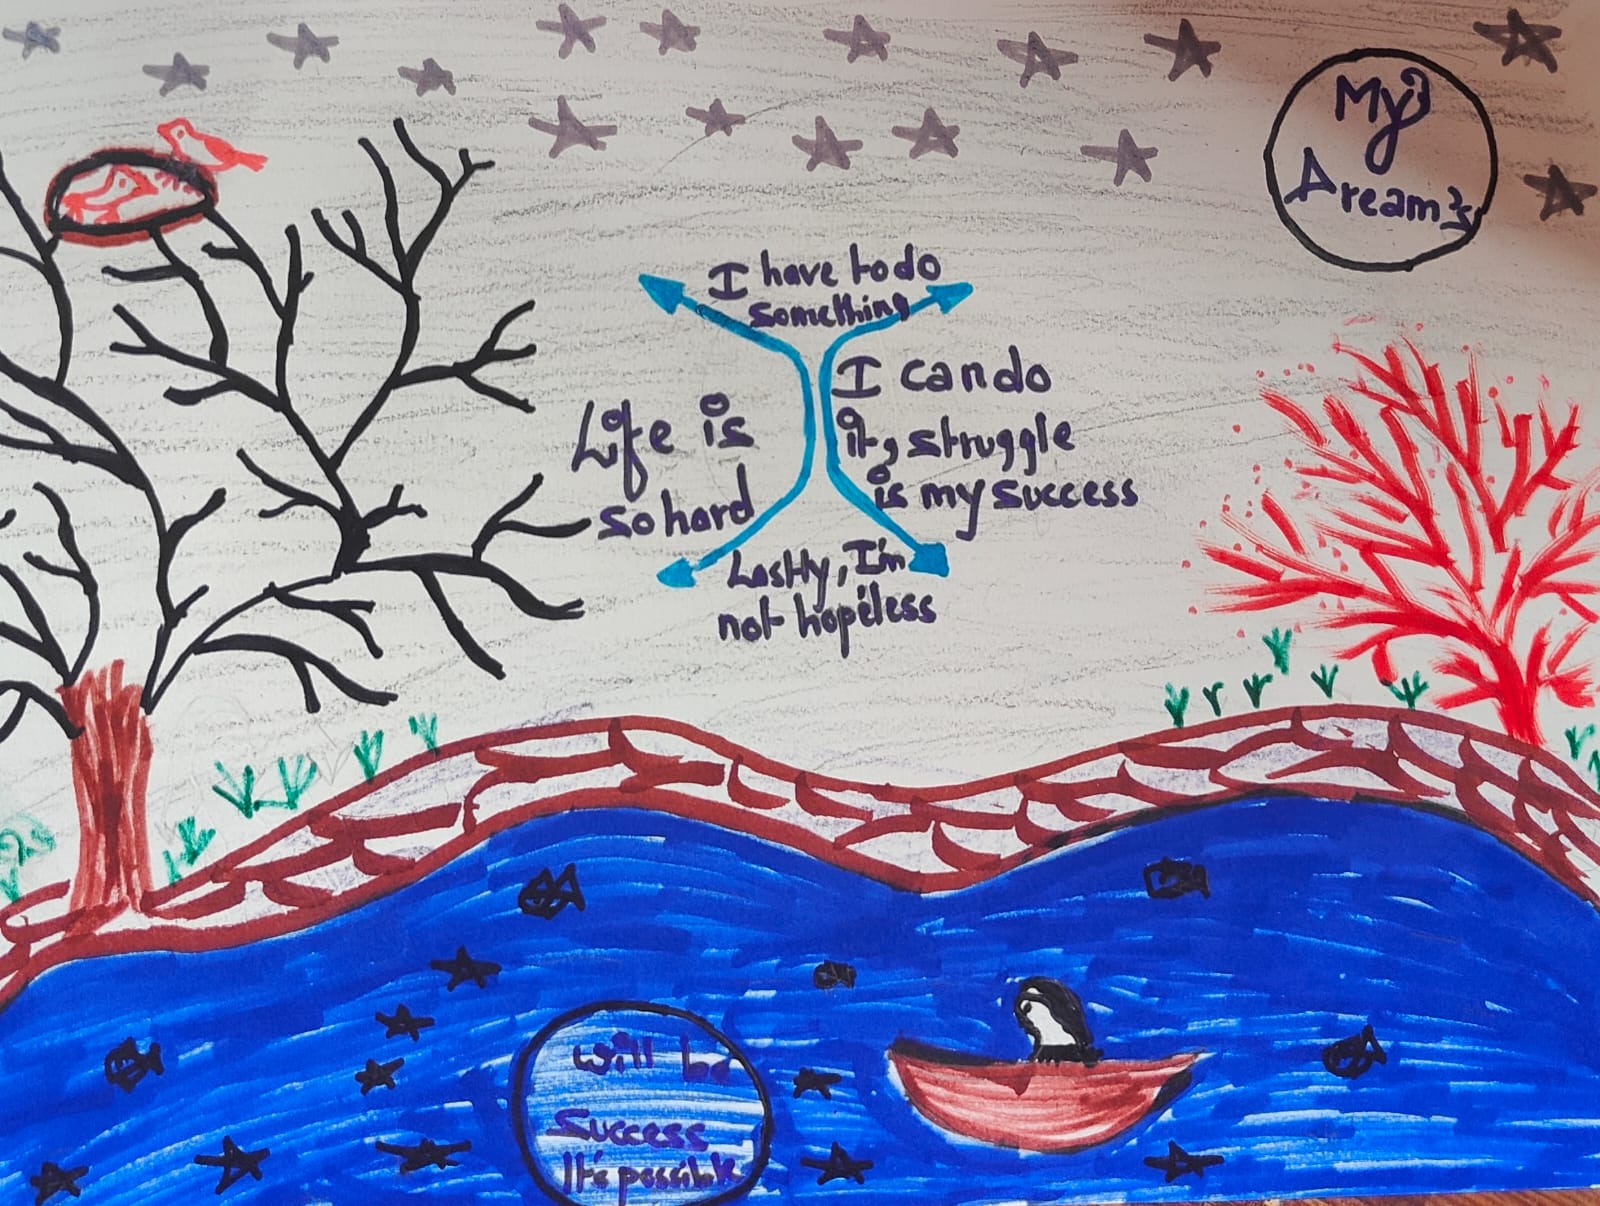 My
Dream's
I have to do
something
Life is
so hard
I can do
it, struggle
is my success
Lastly, I'm
not hopeless
will be
Success
It's possible